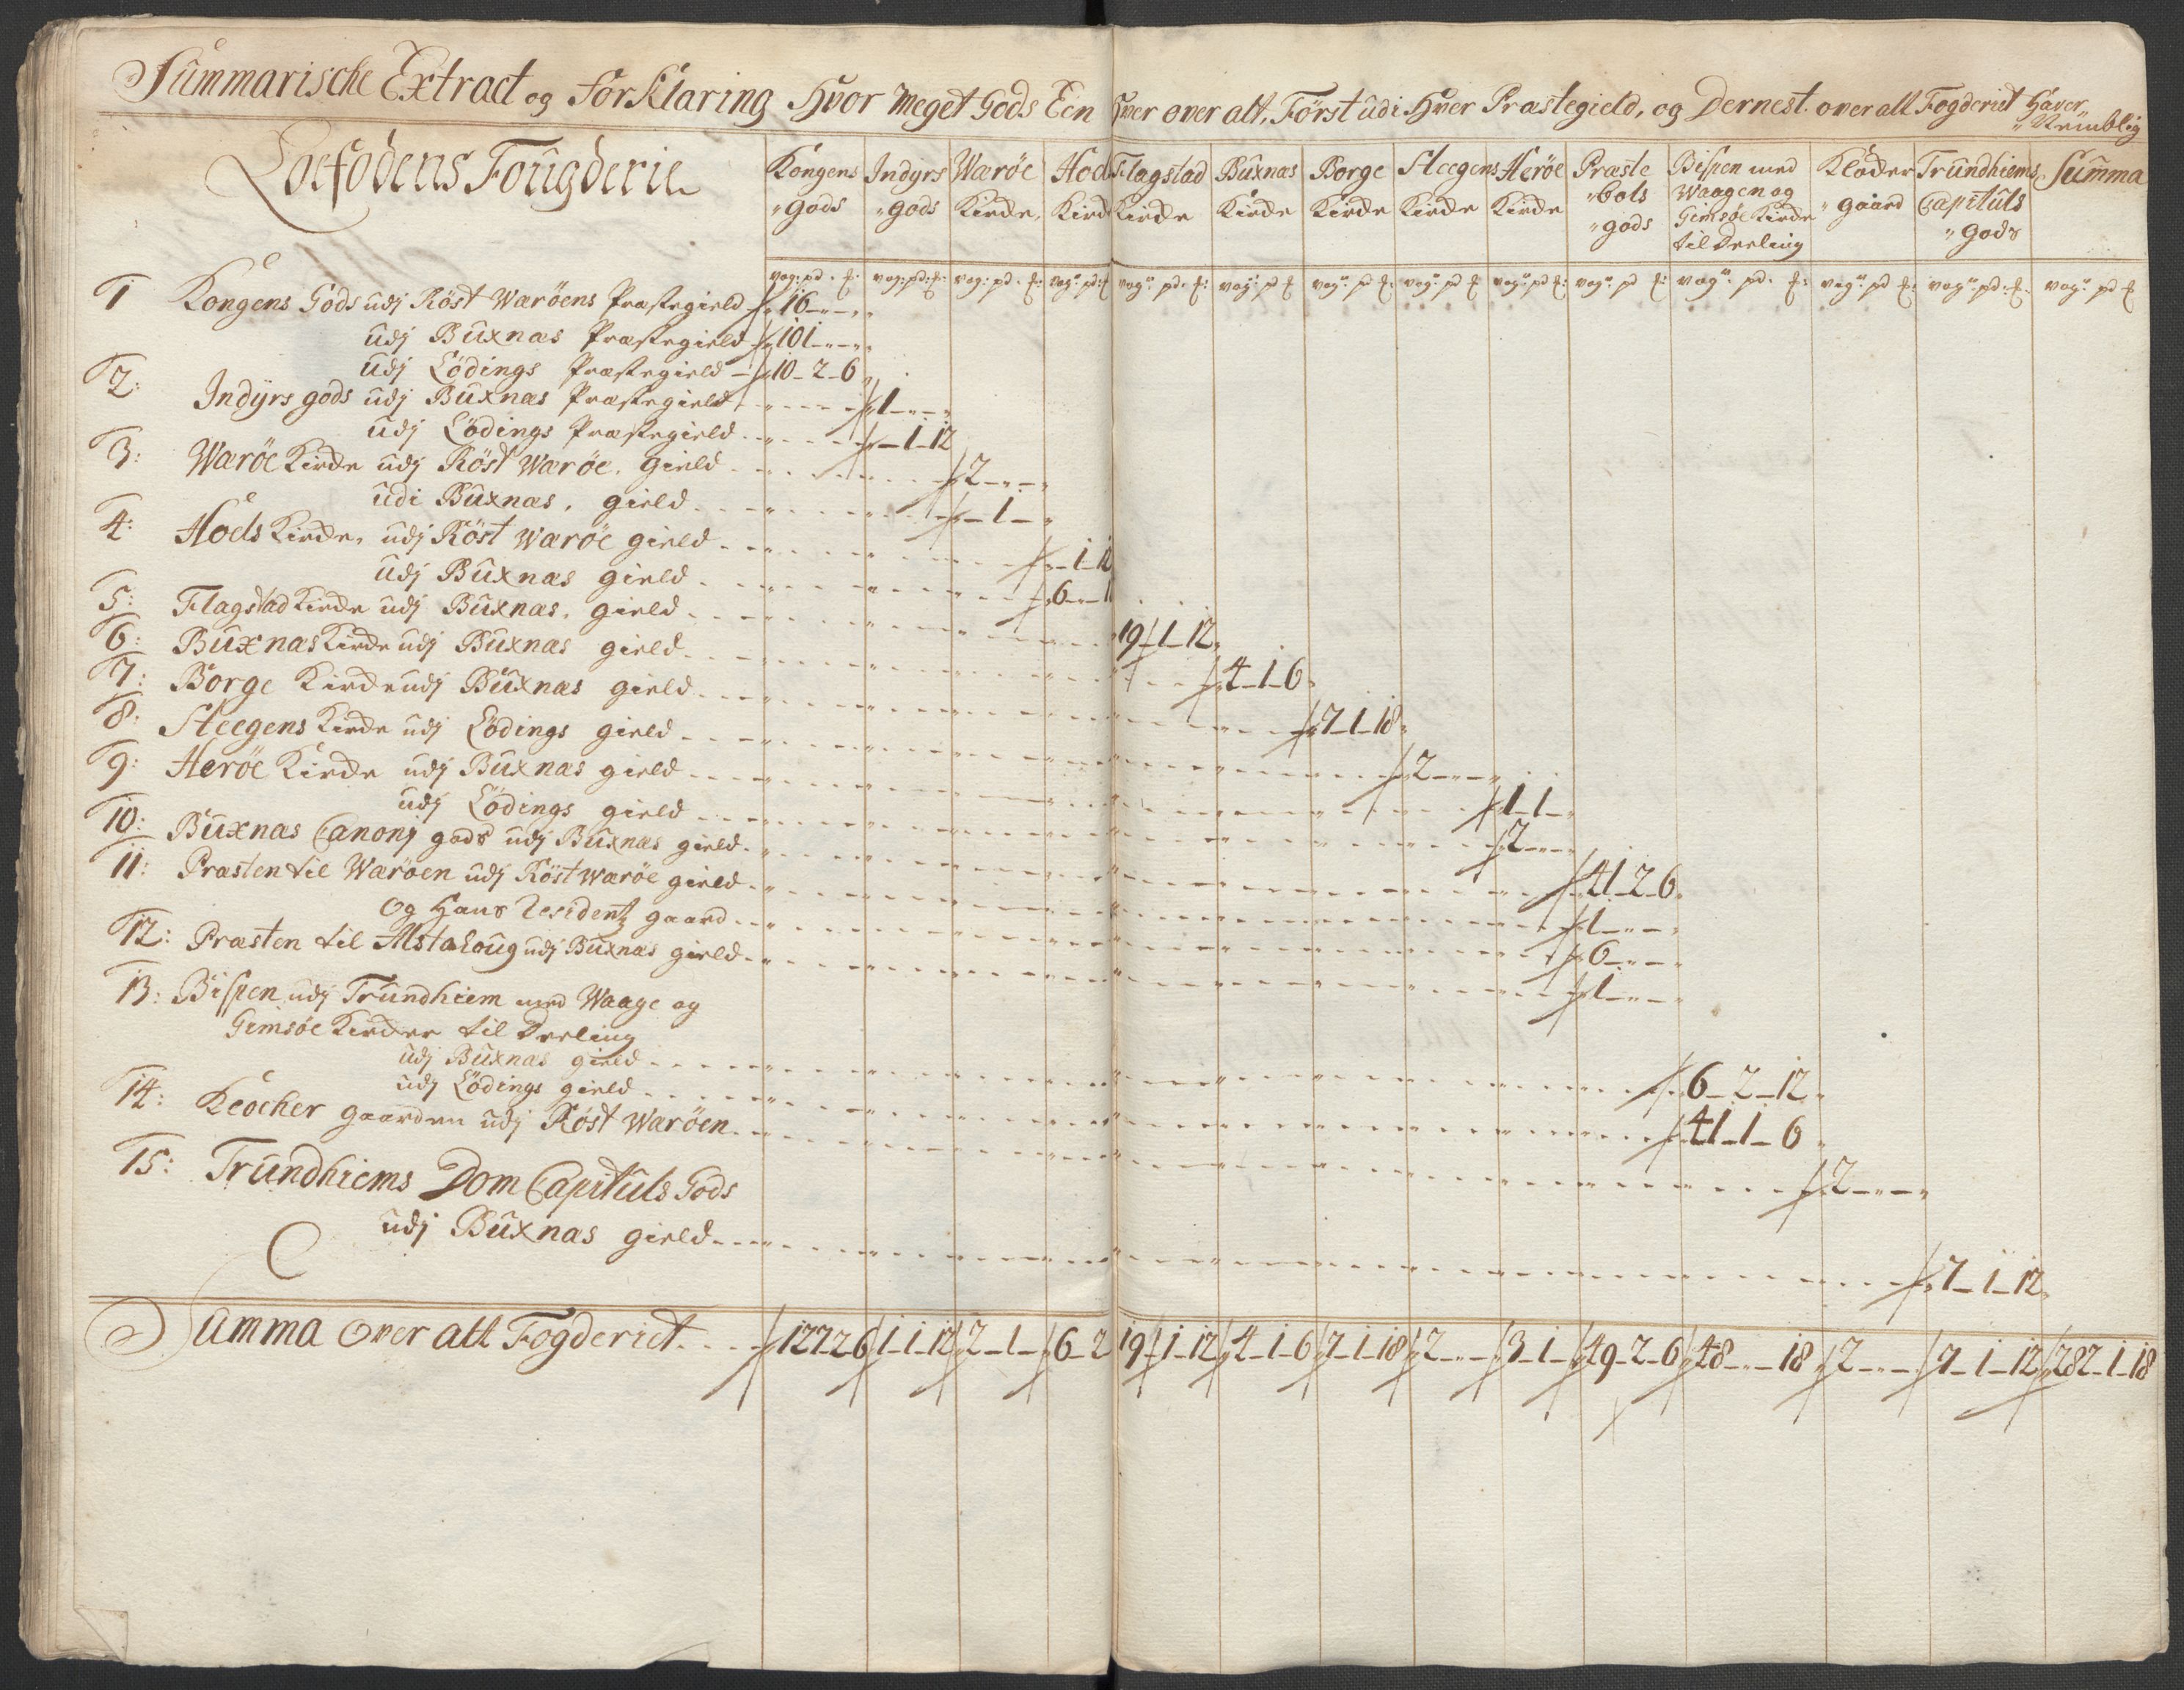 Summarische Extract og forKlaring Hvor meget Gods Een Hver over alt, Först udi Hver Præstegield, og Dernest. over alt Fogderiet Haver
"Nemblig
Loefodens Foùgderie
Kongens Indyrs Warøe Hod Flagstad Buxnæs Borge Steegens Herøe Præste Bispen med Klocker Trundhiems Summa
"gods "gods Kirche, Kirch Kirche Kirche Kirche Kirche Kirche "bols Waagen og "gaard Capituls
"gods Gimsøe Kirche "Gods
til Deeling
vog: pd: £: vog: pd: £: vog: pd: £: vog: pd: £ vog: pd: £: vog: pd £ vog: pd £: vog: pd £ vog: pd £: vog: pd £: vog: pd: £: vog: pd £: vog: pd: £: vog: pd £
1 Kongens Gods udj Röst Warøens Præstegield 16 - " - "
udj Buxnæs Præstegield 101 - " - "
udj Lödings Præstegield 10 - 2 - 6
2: Indyrs gods udj Buxnæs Præstegield 1 - " - "
udj Lödings Præstegield " - 1 - 12
3: Warøe Kirche udj Röst Warøe. gield 2 - " - "
udi Buxnæs. gield " - 1 - "
4: Hods Kirche, udj Röst Warøe gield " - 1 - 12
udj Buxnæs gield 6 - " - 1
5: Flagstad Kirche udj Buxnæs. gield 19 - 1 - 12
6: Buxnæs Kirche udj Buxnæs gield 4 - 1 - 6
7: Borge Kirche udj Buxnæs gield 7 - 1 - 18
8: Steegens Kirche udj Lödings gield 2 - " - "
9: Herøe Kirche udj Buxnæs gield 1 - 1 - "
udj Lödings gield 2 - " - "
10: Buxnæs Canonj gods udj Buxnæs gield 41 - 2 - 6
11: Præsten til Warøen udj Röst warøe gield 1 - " - "
Og Hans Residentz gaard 6 - " - "
12: Præsten til Alstahoug udj Buxnæs gield 1 - " - "
13: Bispen udj Trundhiem med Waage og
Gimsøe Kircher til Deeling
udj Buxnæs gield 6 - 2 - 12
udj Lödings gield 41 - 1 - 6
14: Klocher gaarden udj Röst Warøen 2 - " - "
15: Trundhiems Dom Capituls Gods
udj Buxnæs gield 7 - 1 - 12
Summa over alt Fogderiet 127 - 2 - 6 1 - 1 - 12 2 - 1 - " 6 - 2 19 - 1 - 12 4 - 1 - 6 7 - 1 - 18 2 - " - " 3 - 1 - " 49 - 2 - 6 48 - " - 18 2 - " - " 7 - 1 - 12 282 - 1 - 18